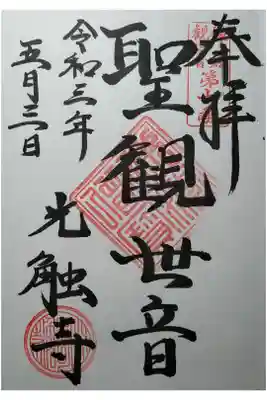 奉拝
聖観世音
令和三年
五月三日
光触寺